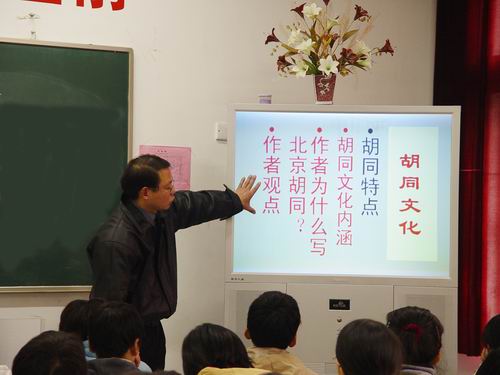 胡同文化
●胡同特点
●胡同文化内涵
●作者为什么写
北京胡同？
●作者观点